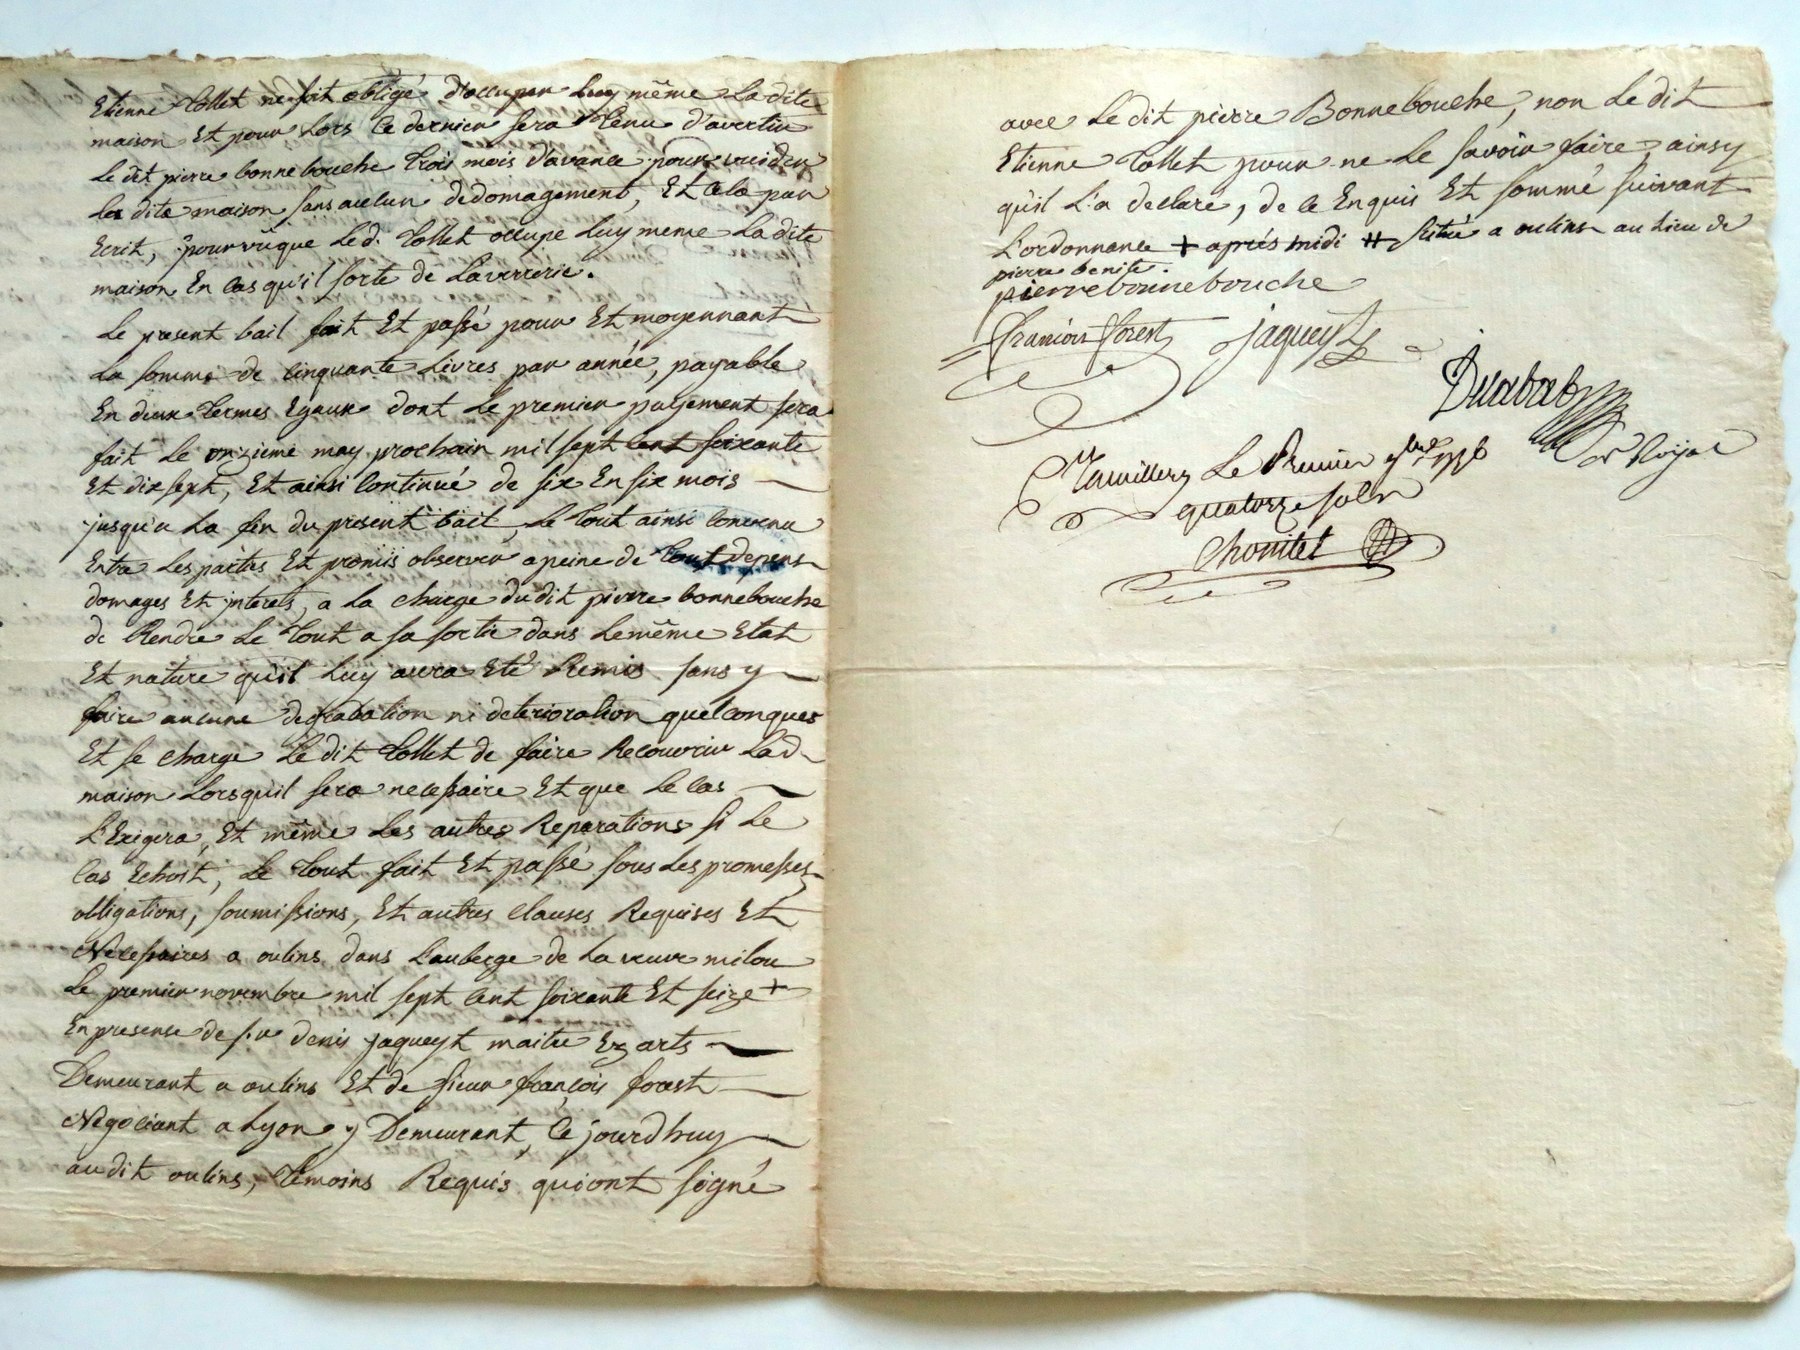 Etienne Tollet ne soit obligé d'occuper Luy même La dite
maison Et pour Lors Ce dernier sera Tenu d'avertir
Le dit pierre bonnebouche Trois mois d'avance pour vuider
La dite maison sans aucun dedomagement, Et Cela par
Ecrit, pourvûque Led. Tollet occupe Luy meme La dite
maison En Cas qu'il sorte de Laverrerie.
Le present bail fait Et passé pour Et moyennant
La somme de Cinquante Livres par année, payable
En deux Termes Egaux dont Le premier payement sera
fait Le onzieme may prochain mil sept Cent soixante
Et dix sept, Et ainsi Continué de six En six mois
jusqu'a La fin du present bail, Le Tout ainsi Convenu
Entre Les parties Et promis observer a peine de Tout depens
domages Et jnterets, a La Charge du dit pierre bonnebouche
de Rendre Le Tout a sa sortie dans Le même Etat
Et nature qu'il Luy aura Eté Remis sans y
faire aucune degradation ni deterioration quelconques
Et se Charge Le dit Tollet de faire Recouvrir La d.
maison Lorsqu'il sera necessaire Et que Le Cas
L'Exigera, Et même Les autres Reparations si Le
Cas Echoit, Le Tout fait Et passé sous Les promesses,
obligations, soumissions, Et autres Clauses Requises Et
Necessaires a oulins dans L'auberge de La veuve milou
Le premier novembre mil sept Cent soixante Et seize +
En presense de s.r denis jaqueyt maitre Ez arts
Demeurant a oulins Et de sieur françois forest
Negociant a Lyon y Demeurant, Ce jourd'huy
au dit oulins, Temoins Requis qui ont signé
avec Le dit pierre Bonnebouche, non Le dit
Etienne Tollet pour ne Le savoir faire ainsy
qu'il L'a declaré, de Ce Enquis Et sommé suivant
L'ordonnance + aprés midi # sitüé a oulins au Lieu de
pierre benite.
pierrebonnebouche
françois forest jaqueyt
Nre Royal
Le Premier 9bre 1776
quatorze sols